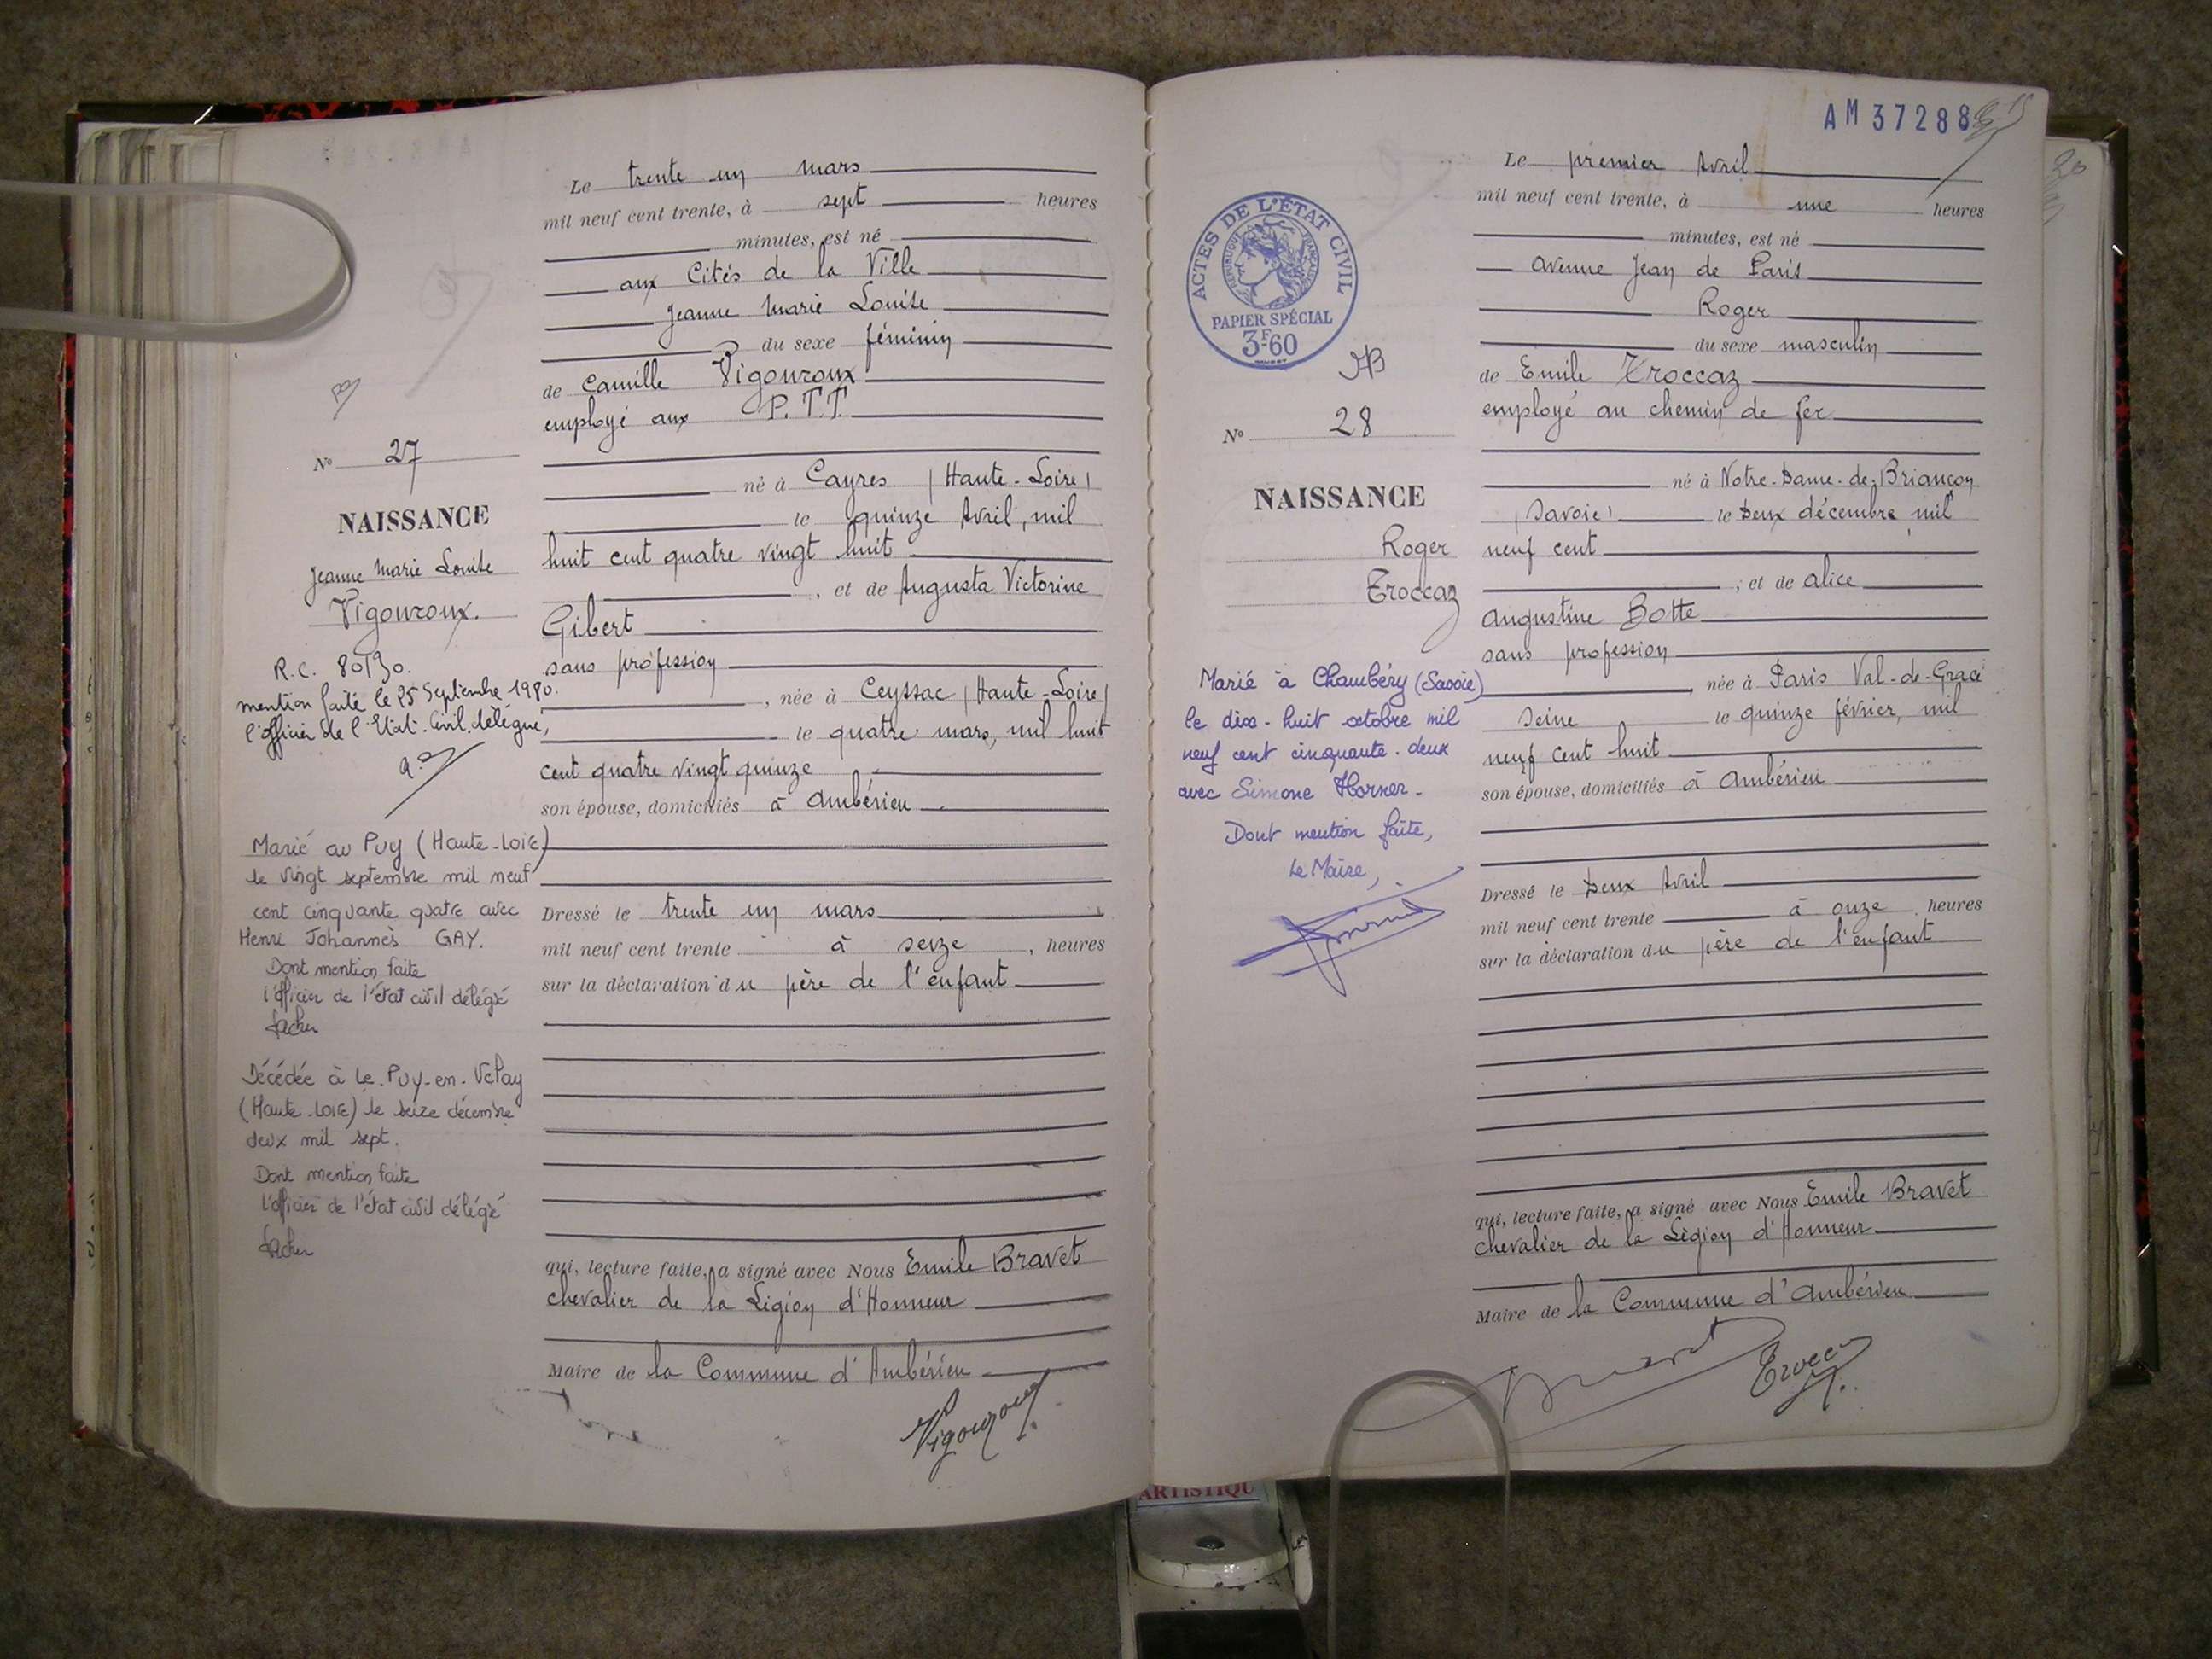 Le trente un mars
mil neuf cent trente, à sept heures
minutes, est né
aux Cités de la Ville
Jeanne Marie Louise
du sexe féminin
de Camille Vigouroux
employé aux P.T.T.
né à Cayres (Haute-Loire)
le quinze Avril, mil
huit cent quatre vingt huit
, et de Augusta Victorine
Gibert
sans profession
, née à Ceyssac (Haute-Loire)
le quatre mars, mil huit
cent quatre vingt quinze
son épouse, domiciliés à Ambérieu
Dressé le trente un mars
mil neuf cent trente à seize, heures
sur la déclaration du père de l'enfant
qui, lecture faite, a signé avec Nous Emile Bravet
chevalier de la Légion d'Honneur
Maire de la Commune d'Ambérieu
Vigouroux
N° 27
NAISSANCE
Jeanne Marie Louise
Vigouroux.
R.C. 80190.
mention faite le 25 Septembre 1980.
l'officier de l'Etat-Civil délégué,
Marié au Puy (Haute-Loire)
le vingt septembre mil neuf
cent cinquante quatre avec
Henri Johannès GAY.
Dont mention faite
l'officier de l'état civil délégué
Décédée à Le-Puy-en-Velay
(Haute-Loire) le seize décembre
deux mil sept.
Dont mention faite
l'officier de l'état civil délégué
AM 37288
Le premier Avril
mil neuf cent trente, à une heures
minutes, est né
avenue Jean de Paris
Roger
du sexe masculin
de Emile Troccaz
employé au chemin de fer
né à Notre-Dame-de-Briançon
(Savoie) le Deux décembre mil
neuf cent
; et de Alice
Augustine Botte
sans profession
, née à Paris Val-de-Grâce
Seine le quinze février, mil
neuf cent huit
son épouse, domiciliés à Ambérieu
Dressé le Deux Avril
mil neuf cent trente à onze heures
sur la déclaration du père de l'enfant
qui, lecture faite, a signé avec Nous Emile Bravet
chevalier de la Légion d'Honneur
Maire de la Commune d'Ambérieu
Bravet
Troccaz
ACTES DE L'ÉTAT CIVIL
RÉPUBLIQUE FRANÇAISE
PAPIER SPÉCIAL
3F60
N° 28
NAISSANCE
Roger
Troccaz
Marié à Chambéry (Savoie)
le dix-huit octobre mil
neuf cent cinquante-deux
avec Simone Horner.
Dont mention faite,
Le Maire,
20
ARTISTIQU